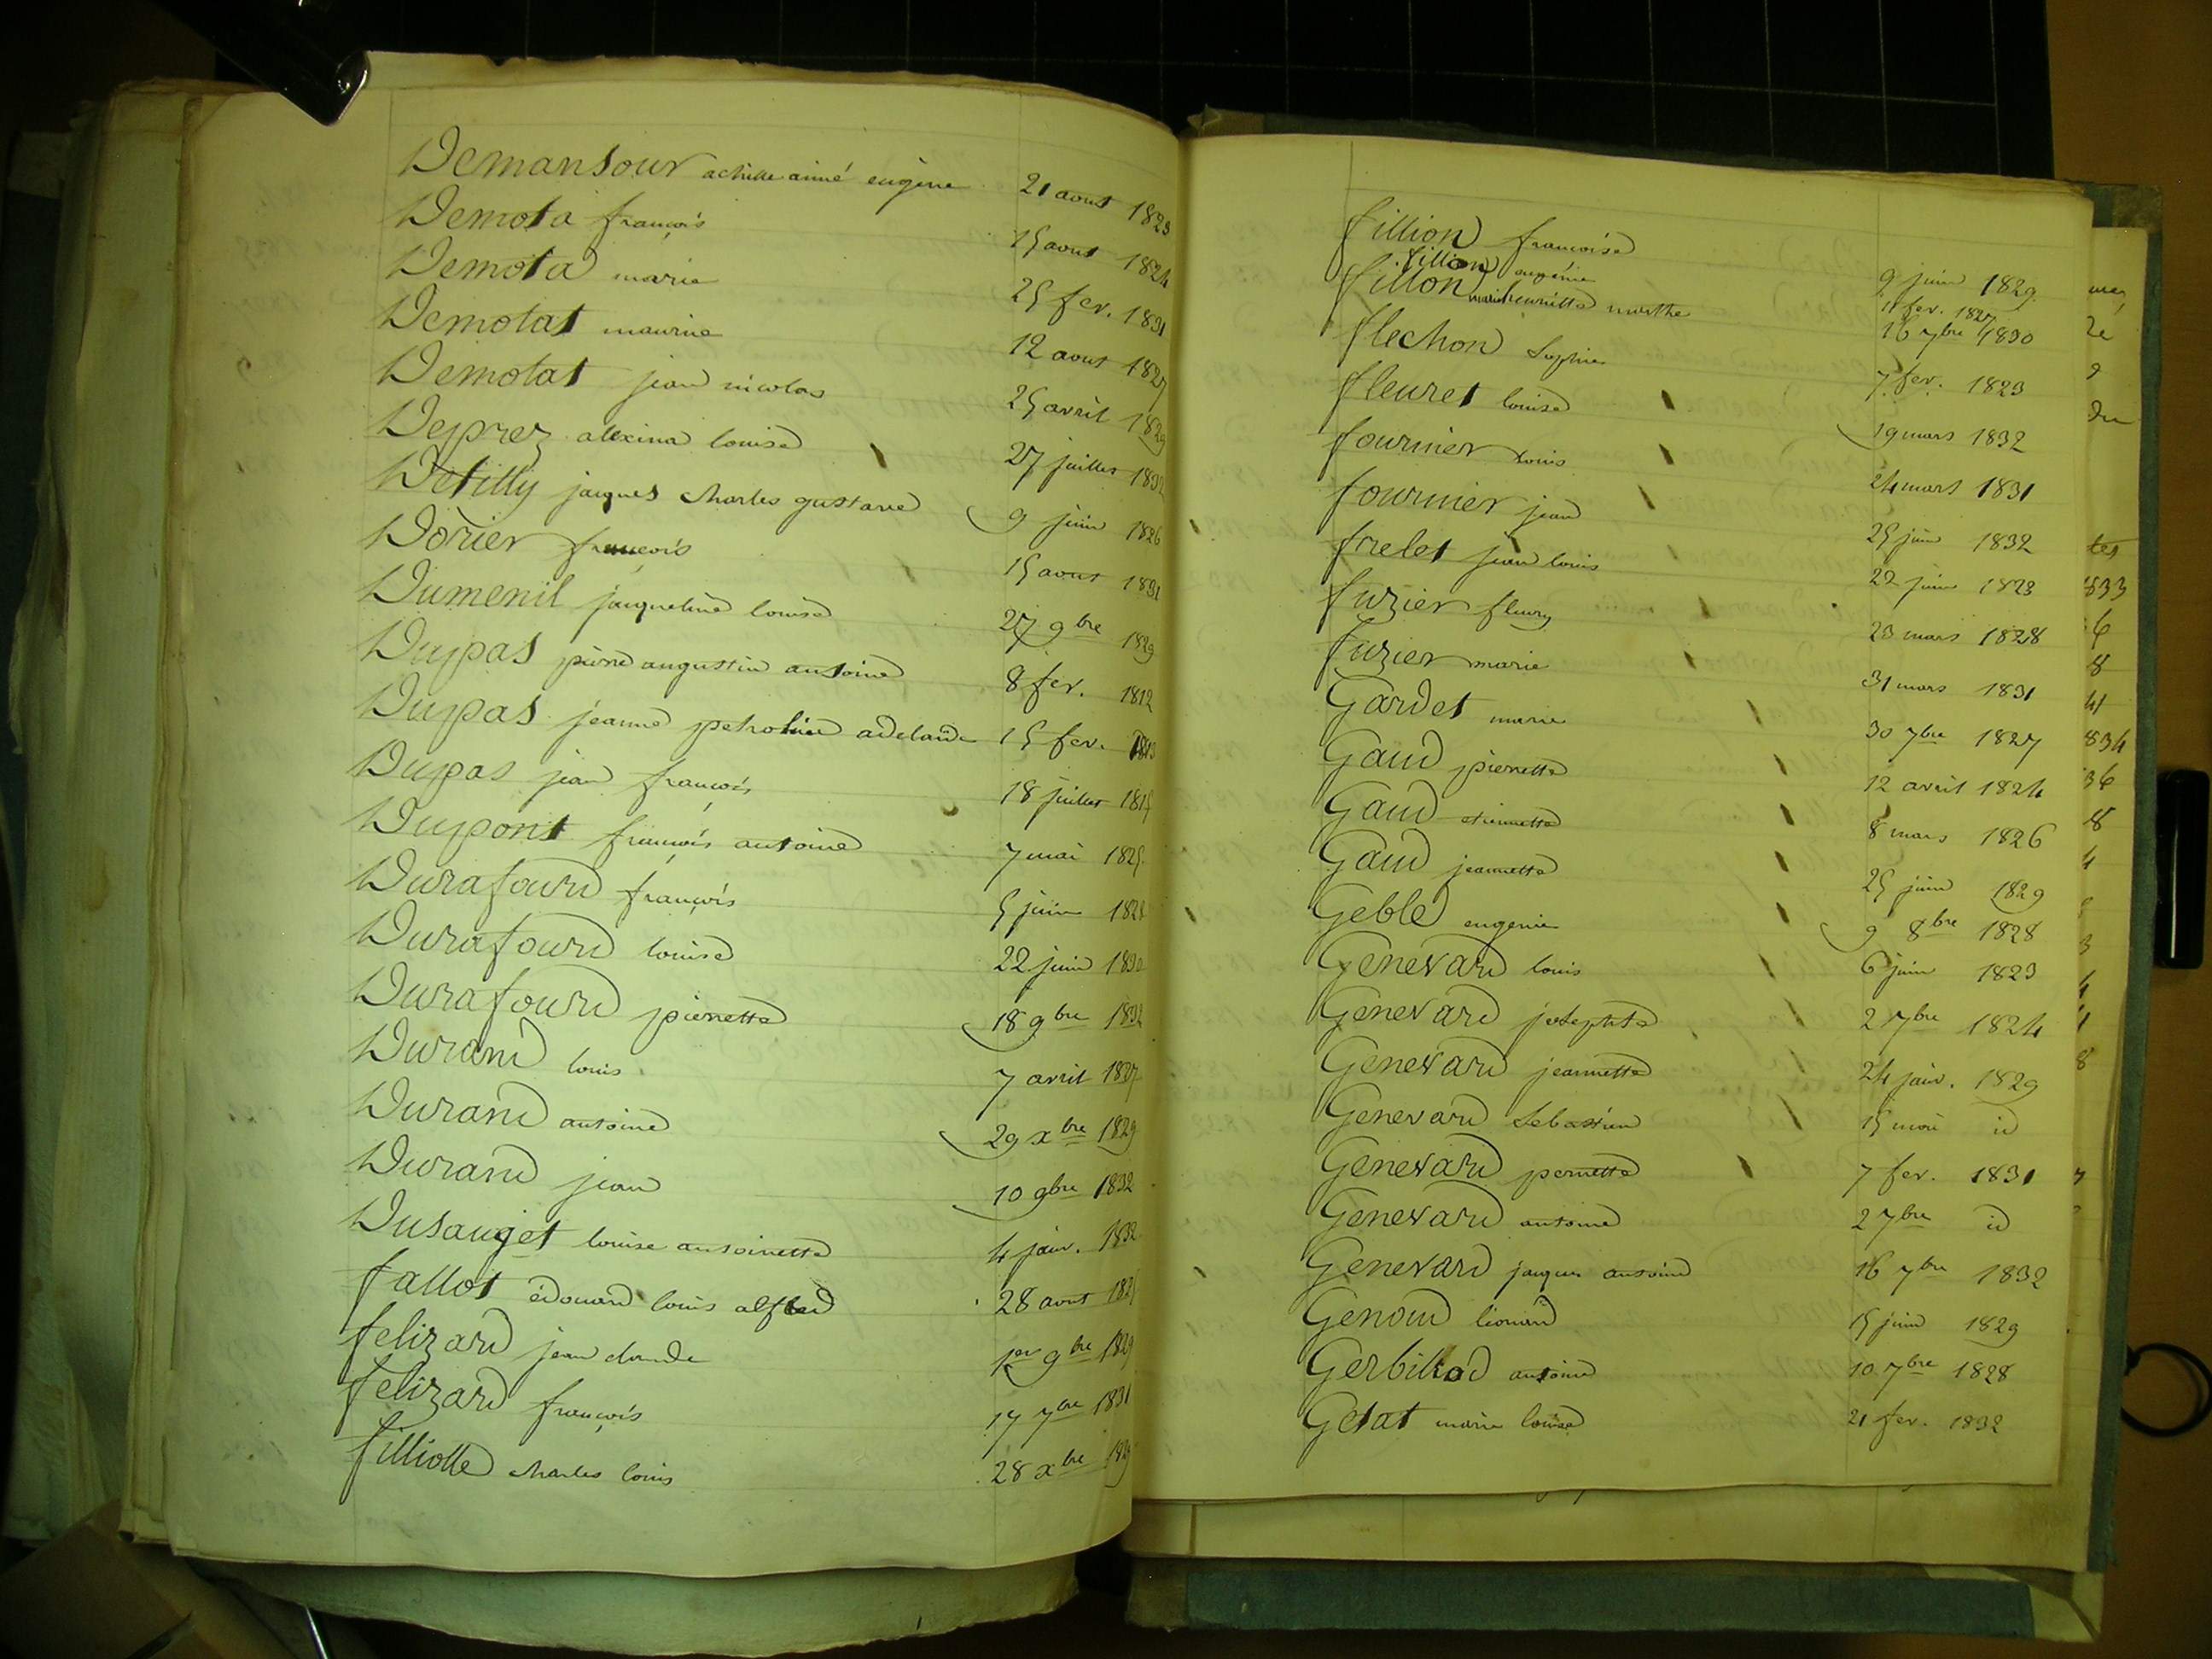 Demansour achille aimé eugène 21 aout 1823
Demota françois 15 aout 1824
Demota marie 25 fev. 1831
Demotat maurine 12 aout 1827
Demotat jean nicolas 25 avril 1829
Deprez alexina louise 27 juillet 1832
Detilly jacques charles gustave 9 juin 1826
Dorier françois 15 aout 1831
Dumenil jacqueline louise 27 9bre 1829
Dupas pierre augustin antoine 8 fev. 1812
Dupas jeanne petroline adelaide 15 fev. 1813
Dupas jean françois 18 juillet 1815
Dupont françois antoine 7 mai 1825
Durafourd françois 5 juin 1828
Durafourd louise 22 juin 1830
Durafourd pierrette 18 9bre 1832
Durand louis 7 avril 1827
Durand antoine 29 xbre 1829
Durand jean 10 9bre 1832
Dusauget louise antoinette 4 janv. 1832
fallot édouard louis alfred 28 aout 1825
felizard jean claude 1er 9bre 1829
felizard françois 17 7bre 1831
filliolle charles louis 28 xbre 1829
fillion françoise 9 juin 1829
fillion eugénie 11 fev. 1827
fillon marie henriette marthe 16 7bre 1830
flechon Sophie 7 fev. 1823
fleuret louise 19 mars 1832
fournier Louis 24 mars 1831
fournier jean 25 juin 1832
frelet jean louis 22 juin 1823
fuzier fleury 23 mars 1828
fuzier marie 31 mars 1831
Gardet marie 30 7bre 1827
Gaud pierrette 12 avril 1824
Gaud etiennette 8 mars 1826
Gaud jeannette 25 juin 1829
Geble eugenie 9 8bre 1828
Genevard louis 6 juin 1823
Genevard josephte 2 7bre 1824
Genevard jeannette 24 janv. 1829
Genevard Sebastien 15 mai id
Genevard pernette 7 fev. 1831
Genevard antoine 2 7bre id
Genevard jacques antoine 16 7bre 1832
Genoud léonard 15 juin 1829
Gerbillod antoine 10 7bre 1828
Getat marie louise 21 fev. 1832